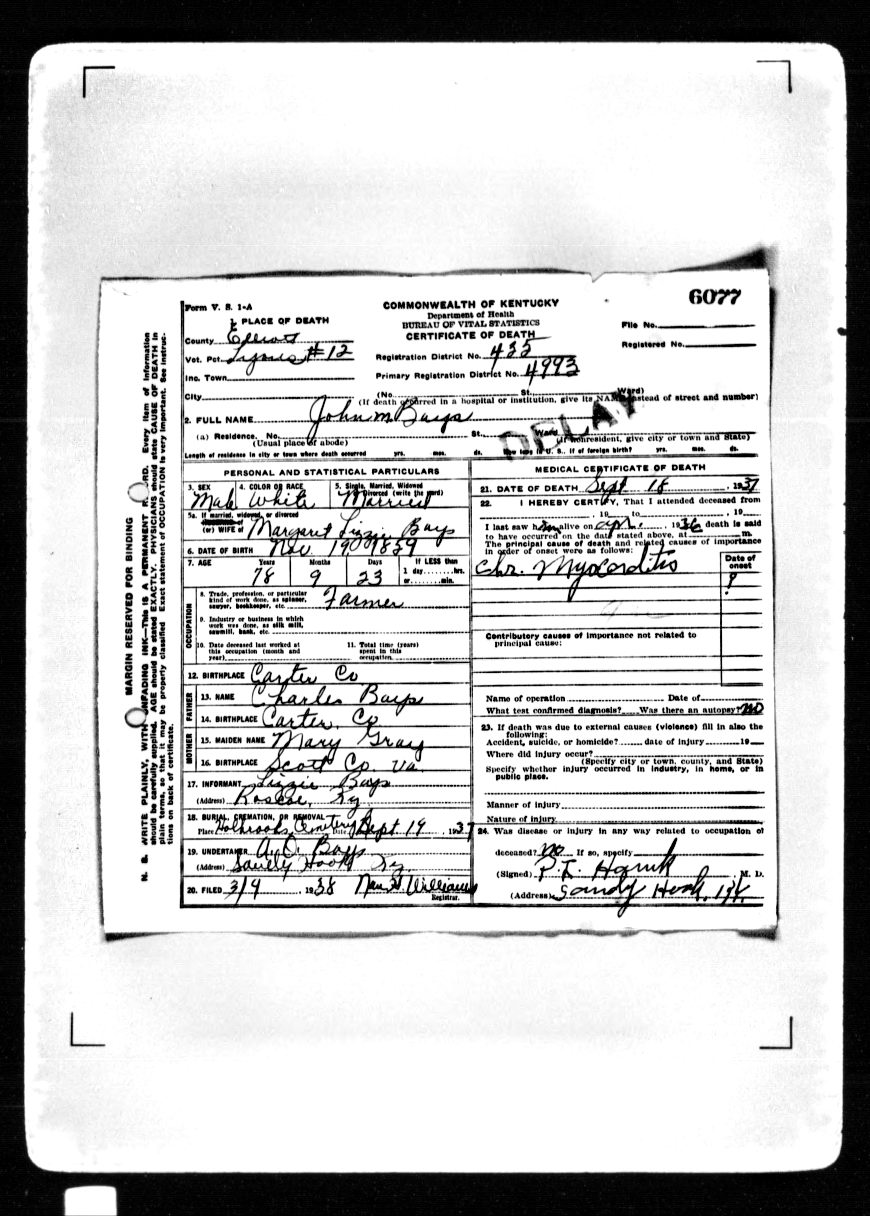 6077
Form V. S. 1-A
COMMONWEALTH OF KENTUCKY
Department of Health
BUREAU OF VITAL STATISTICS
CERTIFICATE OF DEATH
File No.
Registered No.
1. PLACE OF DEATH
County Elliott
Vot. Pct. Lyons #12
Inc. Town
City
Registration District No. 435
Primary Registration District No. 4993
(No. St. Ward)
(If death occurred in a hospital or institution, give its NAME instead of street and number)
DELAY
2. FULL NAME John M Bays
(a) Residence. No. St. Ward
(Usual place of abode) (If nonresident, give city or town and State)
Length of residence in city or town where death occurred yrs. mos. ds. How long in U. S., if of foreign birth? yrs. mos. ds.
PERSONAL AND STATISTICAL PARTICULARS
3. SEX 4. COLOR OR RACE 5. Single, Married, Widowed
Divorced (write the word)
Male White Married
5a. If married, widowed, or divorced
(or) WIFE of Margaret Lizzie Bays
6. DATE OF BIRTH Nov 19 1859
7. AGE Years Months Days If LESS than
1 day hrs.
or min.
78 9 23
OCCUPATION
8. Trade, profession, or particular
kind of work done, as spinner,
sawyer, bookkeeper, etc. Farmer
9. Industry or business in which
work was done, as silk mill,
sawmill, bank, etc.
10. Date deceased last worked at
this occupation (month and
year)
11. Total time (years)
spent in this
occupation
12. BIRTHPLACE Carter Co
FATHER
13. NAME Charles Bays
14. BIRTHPLACE Carter, Co
MOTHER
15. MAIDEN NAME Mary Gray
16. BIRTHPLACE Scott Co, Va
17. INFORMANT Lizzie Bays
(Address) Roscoe, Ky
18. BURIAL, CREMATION, OR REMOVAL
Place Holbrooks Cemetery Date Sept 19 1937
19. UNDERTAKER A. O. Bays
(Address) Sandy Hook Ky
20. FILED 3/9 1938 Williams
Registrar.
MEDICAL CERTIFICATE OF DEATH
21. DATE OF DEATH Sept 18 1937
22. I HEREBY CERTIFY, That I attended deceased from
, 19 to , 19
I last saw him alive on Apr. , 1936 death is said
to have occurred on the date stated above, at m.
The principal cause of death and related causes of importance
in order of onset were as follows:
Date of
onset
Chr. Myocarditis ?
Contributory causes of importance not related to
principal cause:
Name of operation Date of
What test confirmed diagnosis? Was there an autopsy? No
23. If death was due to external causes (violence) fill in also the
following:
Accident, suicide, or homicide? date of injury 19
Where did injury occur?
(Specify city or town, county, and State)
Specify whether injury occurred in industry, in home, or in
public place.
Manner of injury
Nature of injury
24. Was disease or injury in any way related to occupation of
deceased? No If so, specify
(Signed) M. D.
(Address) Sandy Hook, Ky.
MARGIN RESERVED FOR BINDING
N. B. WRITE PLAINLY, WITH UNFADING INK—This IS A PERMANENT RECORD. Every item of information
should be carefully supplied. AGE should be stated EXACTLY. PHYSICIANS should state CAUSE OF DEATH in
plain terms, so that it may be properly classified. Exact statement of OCCUPATION is very important. See instruc-
tions on back of certificate.